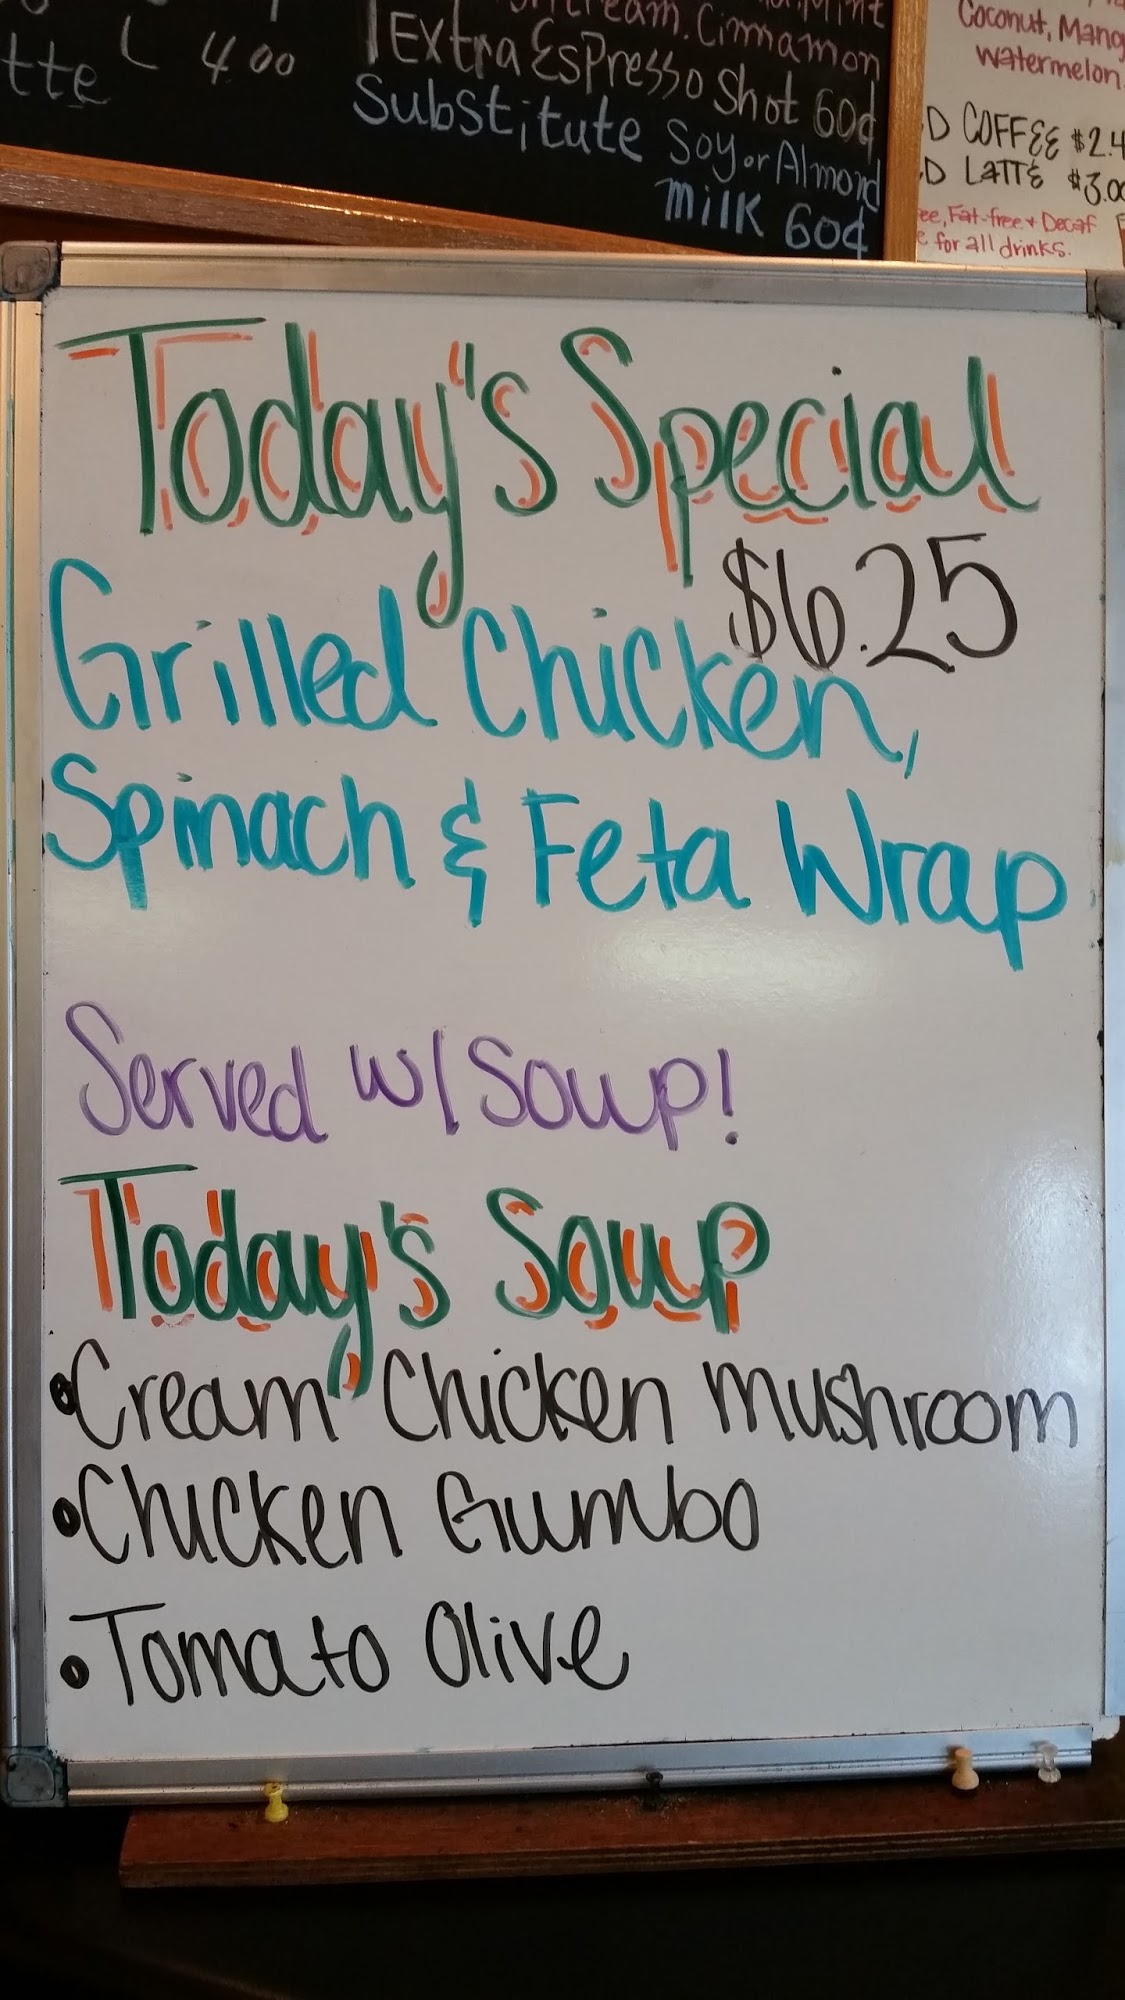 tte L 4.00
Cinnamon
Extra Espresso Shot 60¢
Substitute Soy or Almond
Milk 60¢
Coconut,
Watermelon
COFFEE
LATTE $3.00
Fat-free + Decaf
for all drinks.
Today's Special
$6.25
Grilled Chicken,
Spinach & Feta Wrap
Served w/ Soup!
Today's Soup
• Cream Chicken mushroom
• Chicken Gumbo
• Tomato Olive